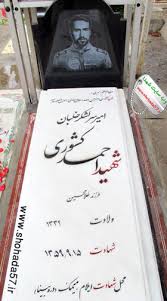 امیر سرلشکر خلبان
شهید احمد کشوری
فرزند غلامحسین
ولادت ۱۳۳۲
شهادت ۱۳۵۹.۹.۱۵
محل شهادت ایلام میمک دره بینا
www.shohada57.ir